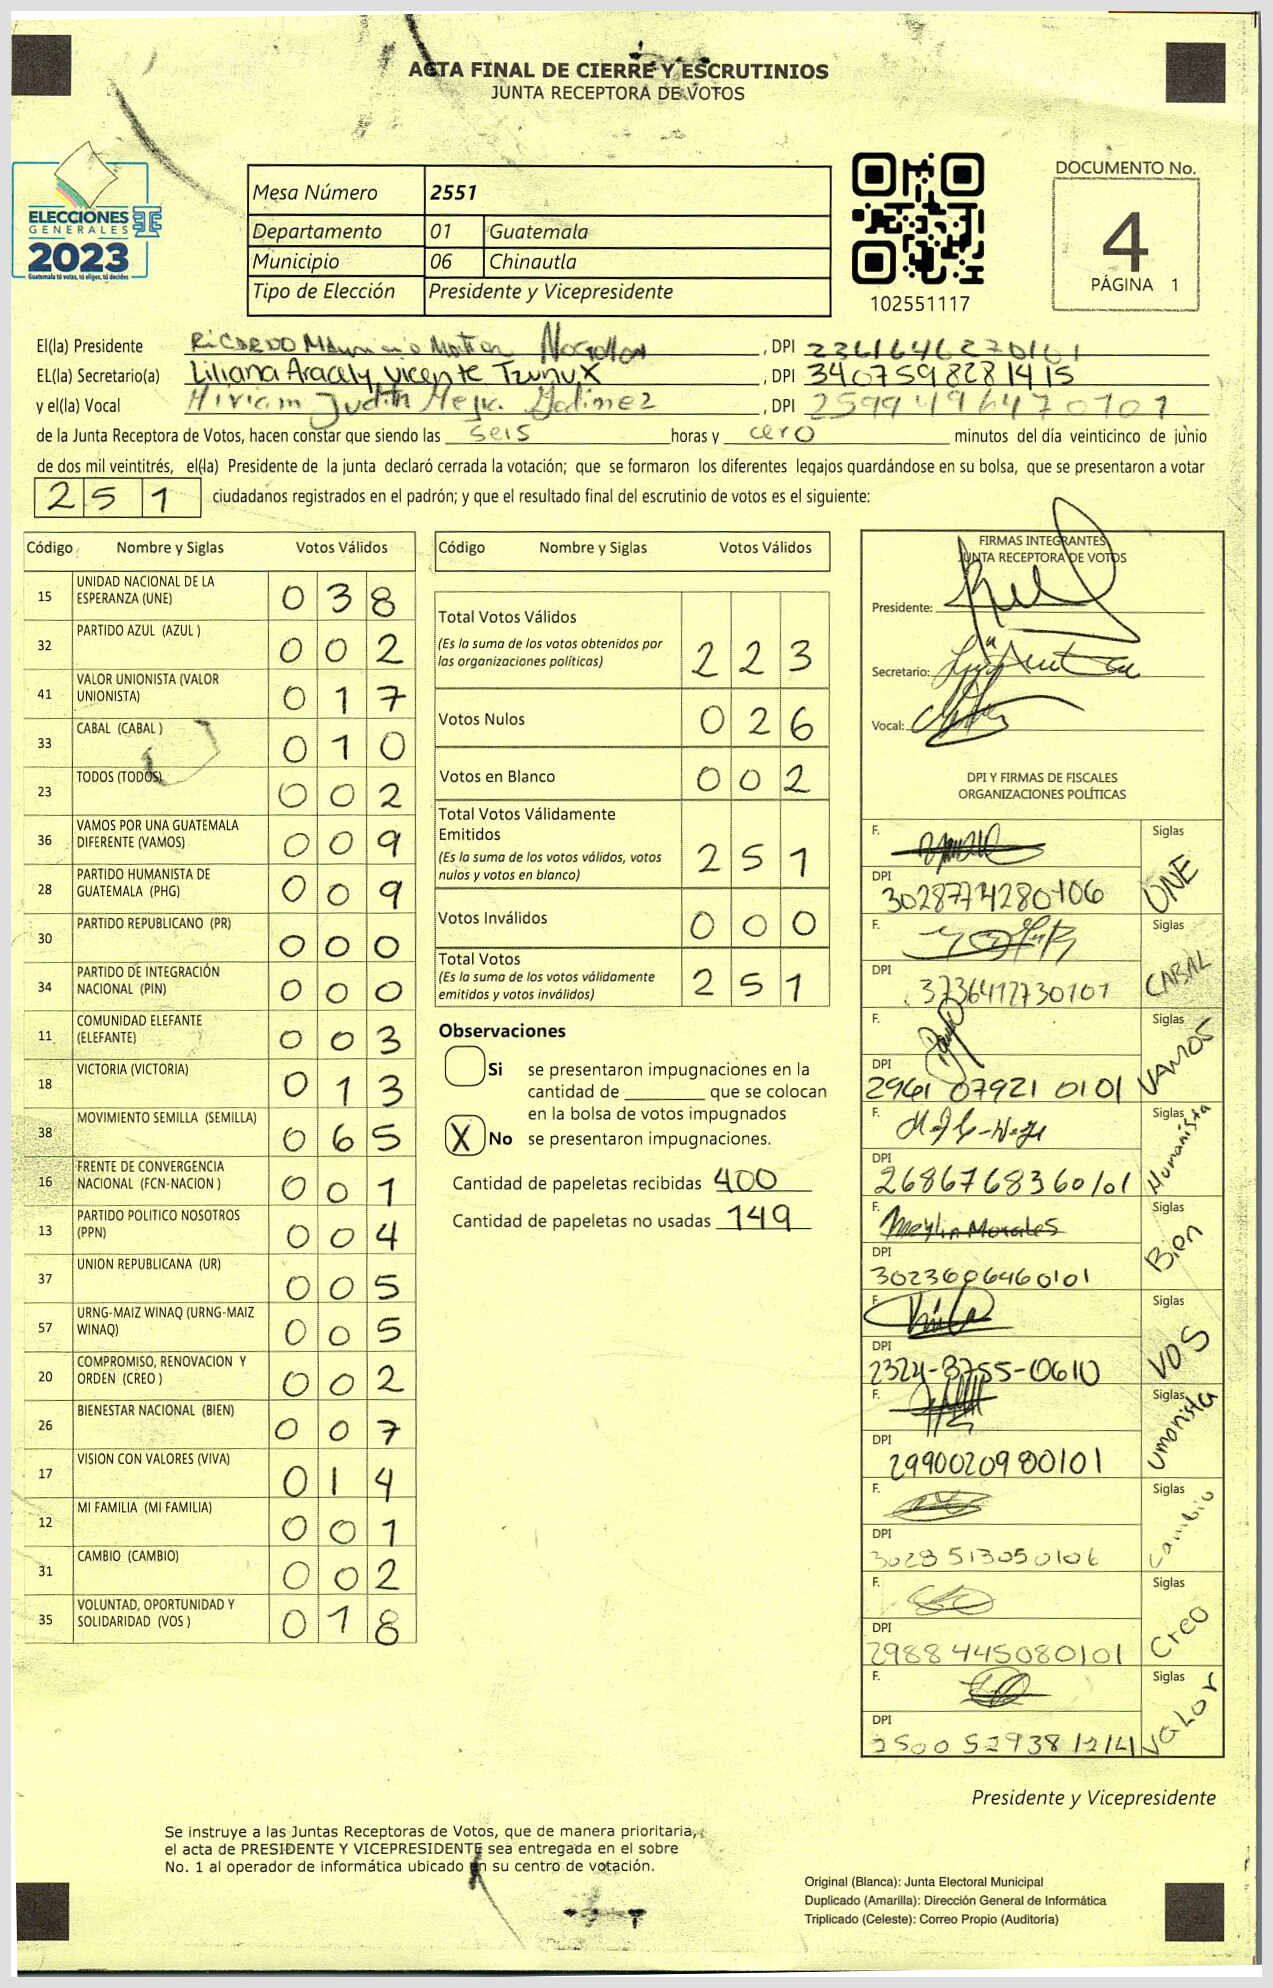 ACTA FINAL DE CIERRE Y ESCRUTINIOS
JUNTA RECEPTORA DE VOTOS
ELECCIONES
GENERALES
2023
Guatemala tú votas, tú eliges, tú decides
Mesa Número 2551
Departamento 01 Guatemala
Municipio 06 Chinautla
Tipo de Elección Presidente y Vicepresidente
102551117
DOCUMENTO No.
4
PÁGINA 1
El(la) Presidente Ricardo Mauricio , DPI 2341646270101
EL(la) Secretario(a) Liliana Aracely Vicente Tzunux , DPI 3407598281415
y el(la) Vocal Miriam Judith Galinez , DPI 2599496470101
de la Junta Receptora de Votos, hacen constar que siendo las seis horas y cero minutos del día veinticinco de junio
de dos mil veintitrés, el(la) Presidente de la junta declaró cerrada la votación; que se formaron los diferentes legajos quardándose en su bolsa, que se presentaron a votar
251 ciudadanos registrados en el padrón; y que el resultado final del escrutinio de votos es el siguiente:
Código Nombre y Siglas Votos Válidos
15 UNIDAD NACIONAL DE LA ESPERANZA (UNE) 038
32 PARTIDO AZUL (AZUL ) 002
41 VALOR UNIONISTA (VALOR UNIONISTA) 017
33 CABAL (CABAL ) 010
23 TODOS (TODOS) 002
36 VAMOS POR UNA GUATEMALA DIFERENTE (VAMOS) 009
28 PARTIDO HUMANISTA DE GUATEMALA (PHG) 009
30 PARTIDO REPUBLICANO (PR) 000
34 PARTIDO DE INTEGRACIÓN NACIONAL (PIN) 000
11 COMUNIDAD ELEFANTE (ELEFANTE) 003
18 VICTORIA (VICTORIA) 013
38 MOVIMIENTO SEMILLA (SEMILLA) 065
16 FRENTE DE CONVERGENCIA NACIONAL (FCN-NACION ) 001
13 PARTIDO POLITICO NOSOTROS (PPN) 004
37 UNION REPUBLICANA (UR) 005
57 URNG-MAIZ WINAQ (URNG-MAIZ WINAQ) 005
20 COMPROMISO, RENOVACION Y ORDEN (CREO ) 002
26 BIENESTAR NACIONAL (BIEN) 007
17 VISION CON VALORES (VIVA) 014
12 MI FAMILIA (MI FAMILIA) 001
31 CAMBIO (CAMBIO) 002
35 VOLUNTAD, OPORTUNIDAD Y SOLIDARIDAD (VOS ) 018
Código Nombre y Siglas Votos Válidos
Total Votos Válidos
(Es la suma de los votos obtenidos por
las organizaciones políticas) 223
Votos Nulos 026
Votos en Blanco 002
Total Votos Válidamente
Emitidos
(Es la suma de los votos válidos, votos
nulos y votos en blanco) 251
Votos Inválidos 000
Total Votos
(Es la suma de los votos válidamente
emitidos y votos inválidos) 251
Observaciones
Si se presentaron impugnaciones en la
cantidad de ________ que se colocan
en la bolsa de votos impugnados
X No se presentaron impugnaciones.
Cantidad de papeletas recibidas 400
Cantidad de papeletas no usadas 149
FIRMAS INTEGRANTES
JUNTA RECEPTORA DE VOTOS
Presidente:
Secretario:
Vocal:
DPI Y FIRMAS DE FISCALES
ORGANIZACIONES POLÍTICAS
F. Siglas UNE
DPI
F. Siglas CABAL
DPI
F. Siglas VAMOS
DPI 2961 07921 0101
F. Siglas Humanista
DPI 2686768360101
F. Meylin Morales Siglas Bien
DPI 3023606460101
F. Siglas VOS
DPI 2324-8755-0610
F. Siglas Umanista
DPI 2990020980101
F. Siglas Cambio
DPI 3028513050106
F. Siglas Creo
DPI 2988 445080101
F. Siglas Valor
DPI 2500 52938 1214
Presidente y Vicepresidente
Se instruye a las Juntas Receptoras de Votos, que de manera prioritaria,
el acta de PRESIDENTE Y VICEPRESIDENTE sea entregada en el sobre
No. 1 al operador de informática ubicado en su centro de votación.
Original (Blanca): Junta Electoral Municipal
Duplicado (Amarilla): Dirección General de Informática
Triplicado (Celeste): Correo Propio (Auditoría)